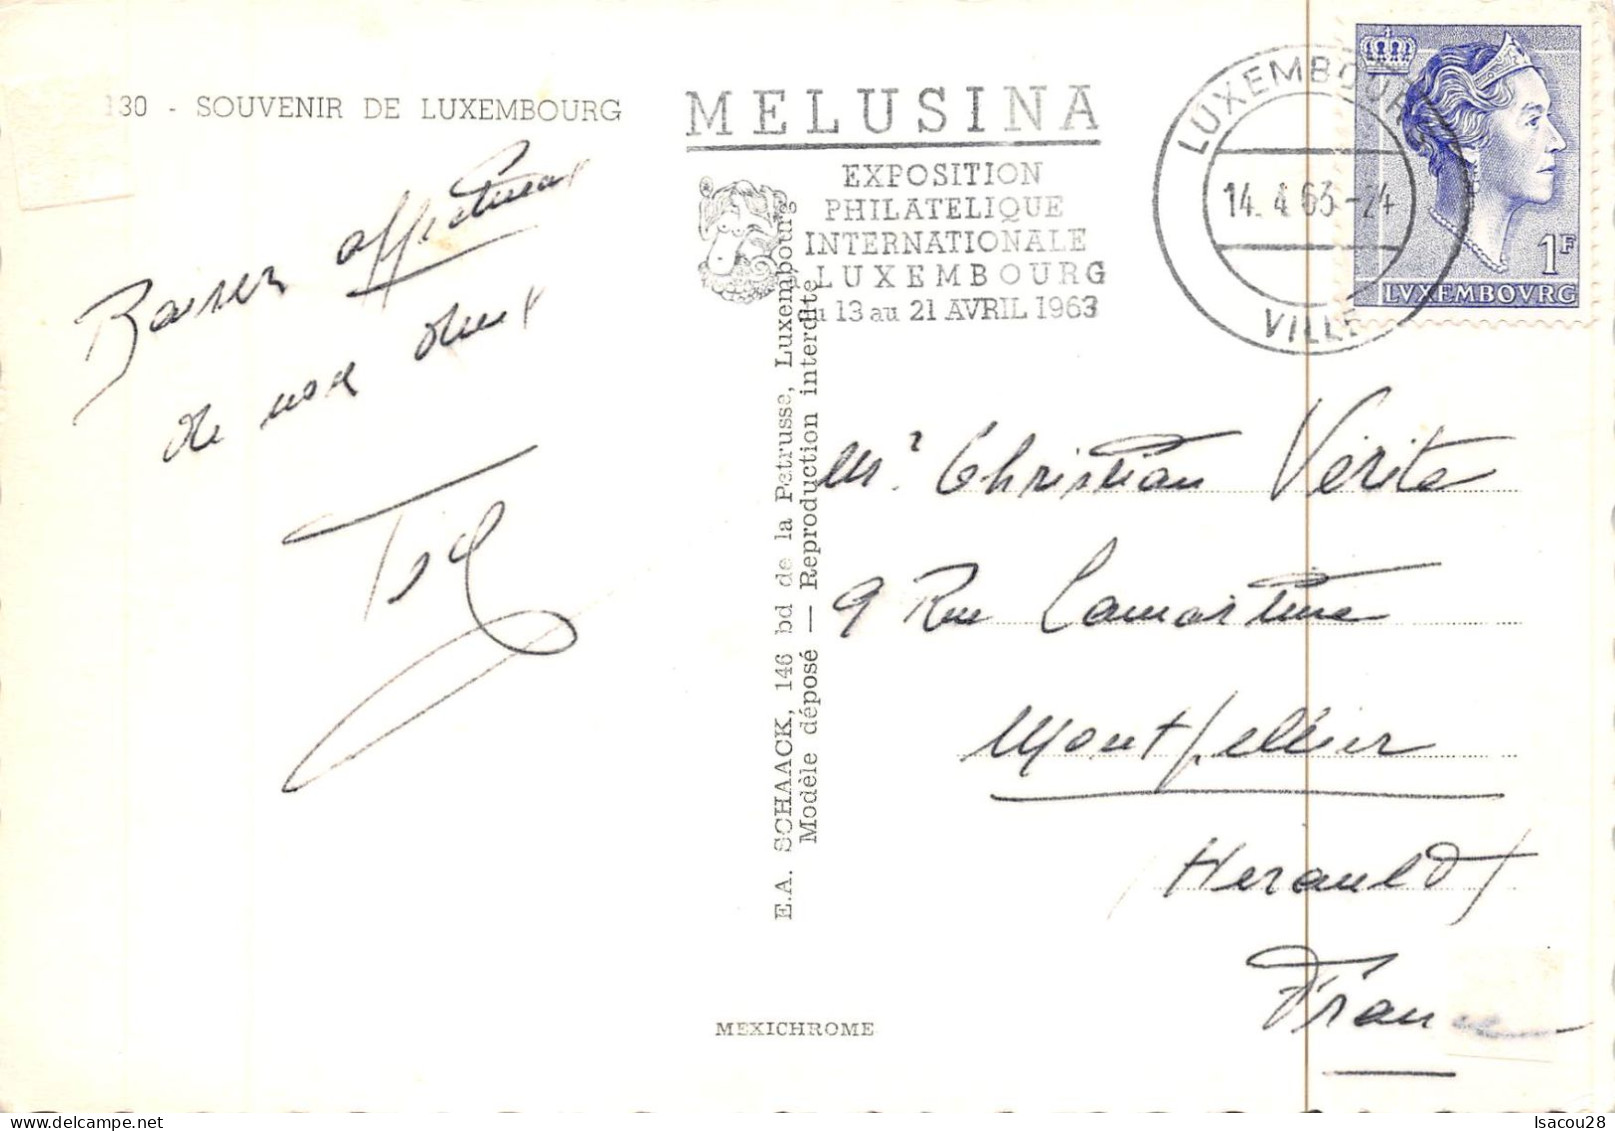 130 - SOUVENIR DE LUXEMBOURG
Baisers affectueux
de nous deux
MELUSINA
EXPOSITION
PHILATELIQUE
INTERNATIONALE
LUXEMBOURG
du 13 au 21 AVRIL 1963
LUXEMBOURG
14. 4. 63-24
VILLE
1F
LVXEMBOVRG
E.A. SCHAACK, 146 bd de la Petrusse, Luxembourg
Modèle déposé — Reproduction interdite
Mr Christian Vérité
9 Rue Lamartine
Montpellier
Herault
France
MEXICHROME
Isacou28